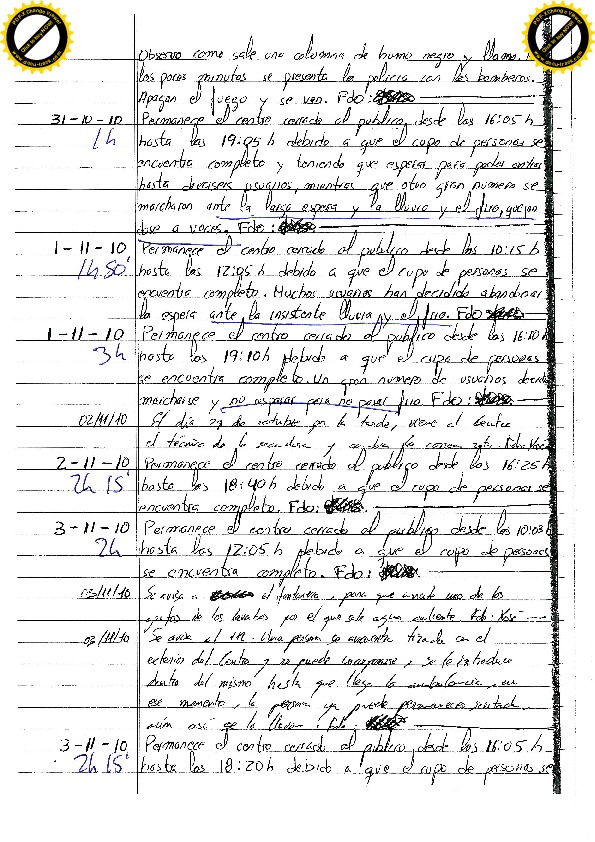 Observo como sale una columna de humo negro y llama. A
los pocos minutos se presenta la policia con los bomberos.
Apagan el fuego y se van. Fdo:
31-10-10 Permanece el centro cerrado al publico, desde las 16:05 h
1h hasta las 19:05 h debido a que el cupo de personas se
encuentra completo y teniendo que esperar para poder entrar
hasta dieciseis usuarios, mientras que otro gran numero se
marcharon ante la larga espera y la lluvia y el frio, quejan
dose a voces. Fdo:
1-11-10 Permanece el centro cerrado al publico desde las 10:15 h
1h 50' hasta las 12:05 h debido a que el cupo de personas se
encuentra completo. Muchos usuarios han decidido abandonar
la espera ante la insistente lluvia y el frio. Fdo
1-11-10 Permanece el centro cerrado al publico desde las 16:10 h
3h hasta las 19:10h debido a que el cupo de personas
se encuentra completo. Un gran numero de usuarios decide
marcharse y no esperar para no pasar frio. Fdo:
02/11/10 El dia 29 de octubre por la tarde, viene al Centro
el técnico de la secadora y cambia la Fdo. Xosé
2-11-10 Permanece el centro cerrado al publico desde las 16:25 h
2h 15' hasta las 18:40 h debido a que el cupo de personas se
encuentra completo. Fdo:
3-11-10 Permanece el centro cerrado al publico desde las 10:03 h
2h hasta las 12:05 h debido a que el cupo de personas
se encuentra completo. Fdo:
03/11/10 Se avisa a el fontanero, para que arregle uno de los
grifos de los lavabos por el que sale agua caliente. Fdo. Xosé
03/11/10 Se avisa al 112. Una persona se encuentra tirada en el
exterior del Centro y no puede incorporarse, se le introduce
dentro del mismo hasta que llega la ambulancia, en
ese momento, la persona ya puede permanecer sentada
aún así se la llevan. Fdo:
3-11-10 Permanece el centro cerrado al publico desde las 16:05 h
2h 15' hasta las 18:20 h debido a que el cupo de personas se